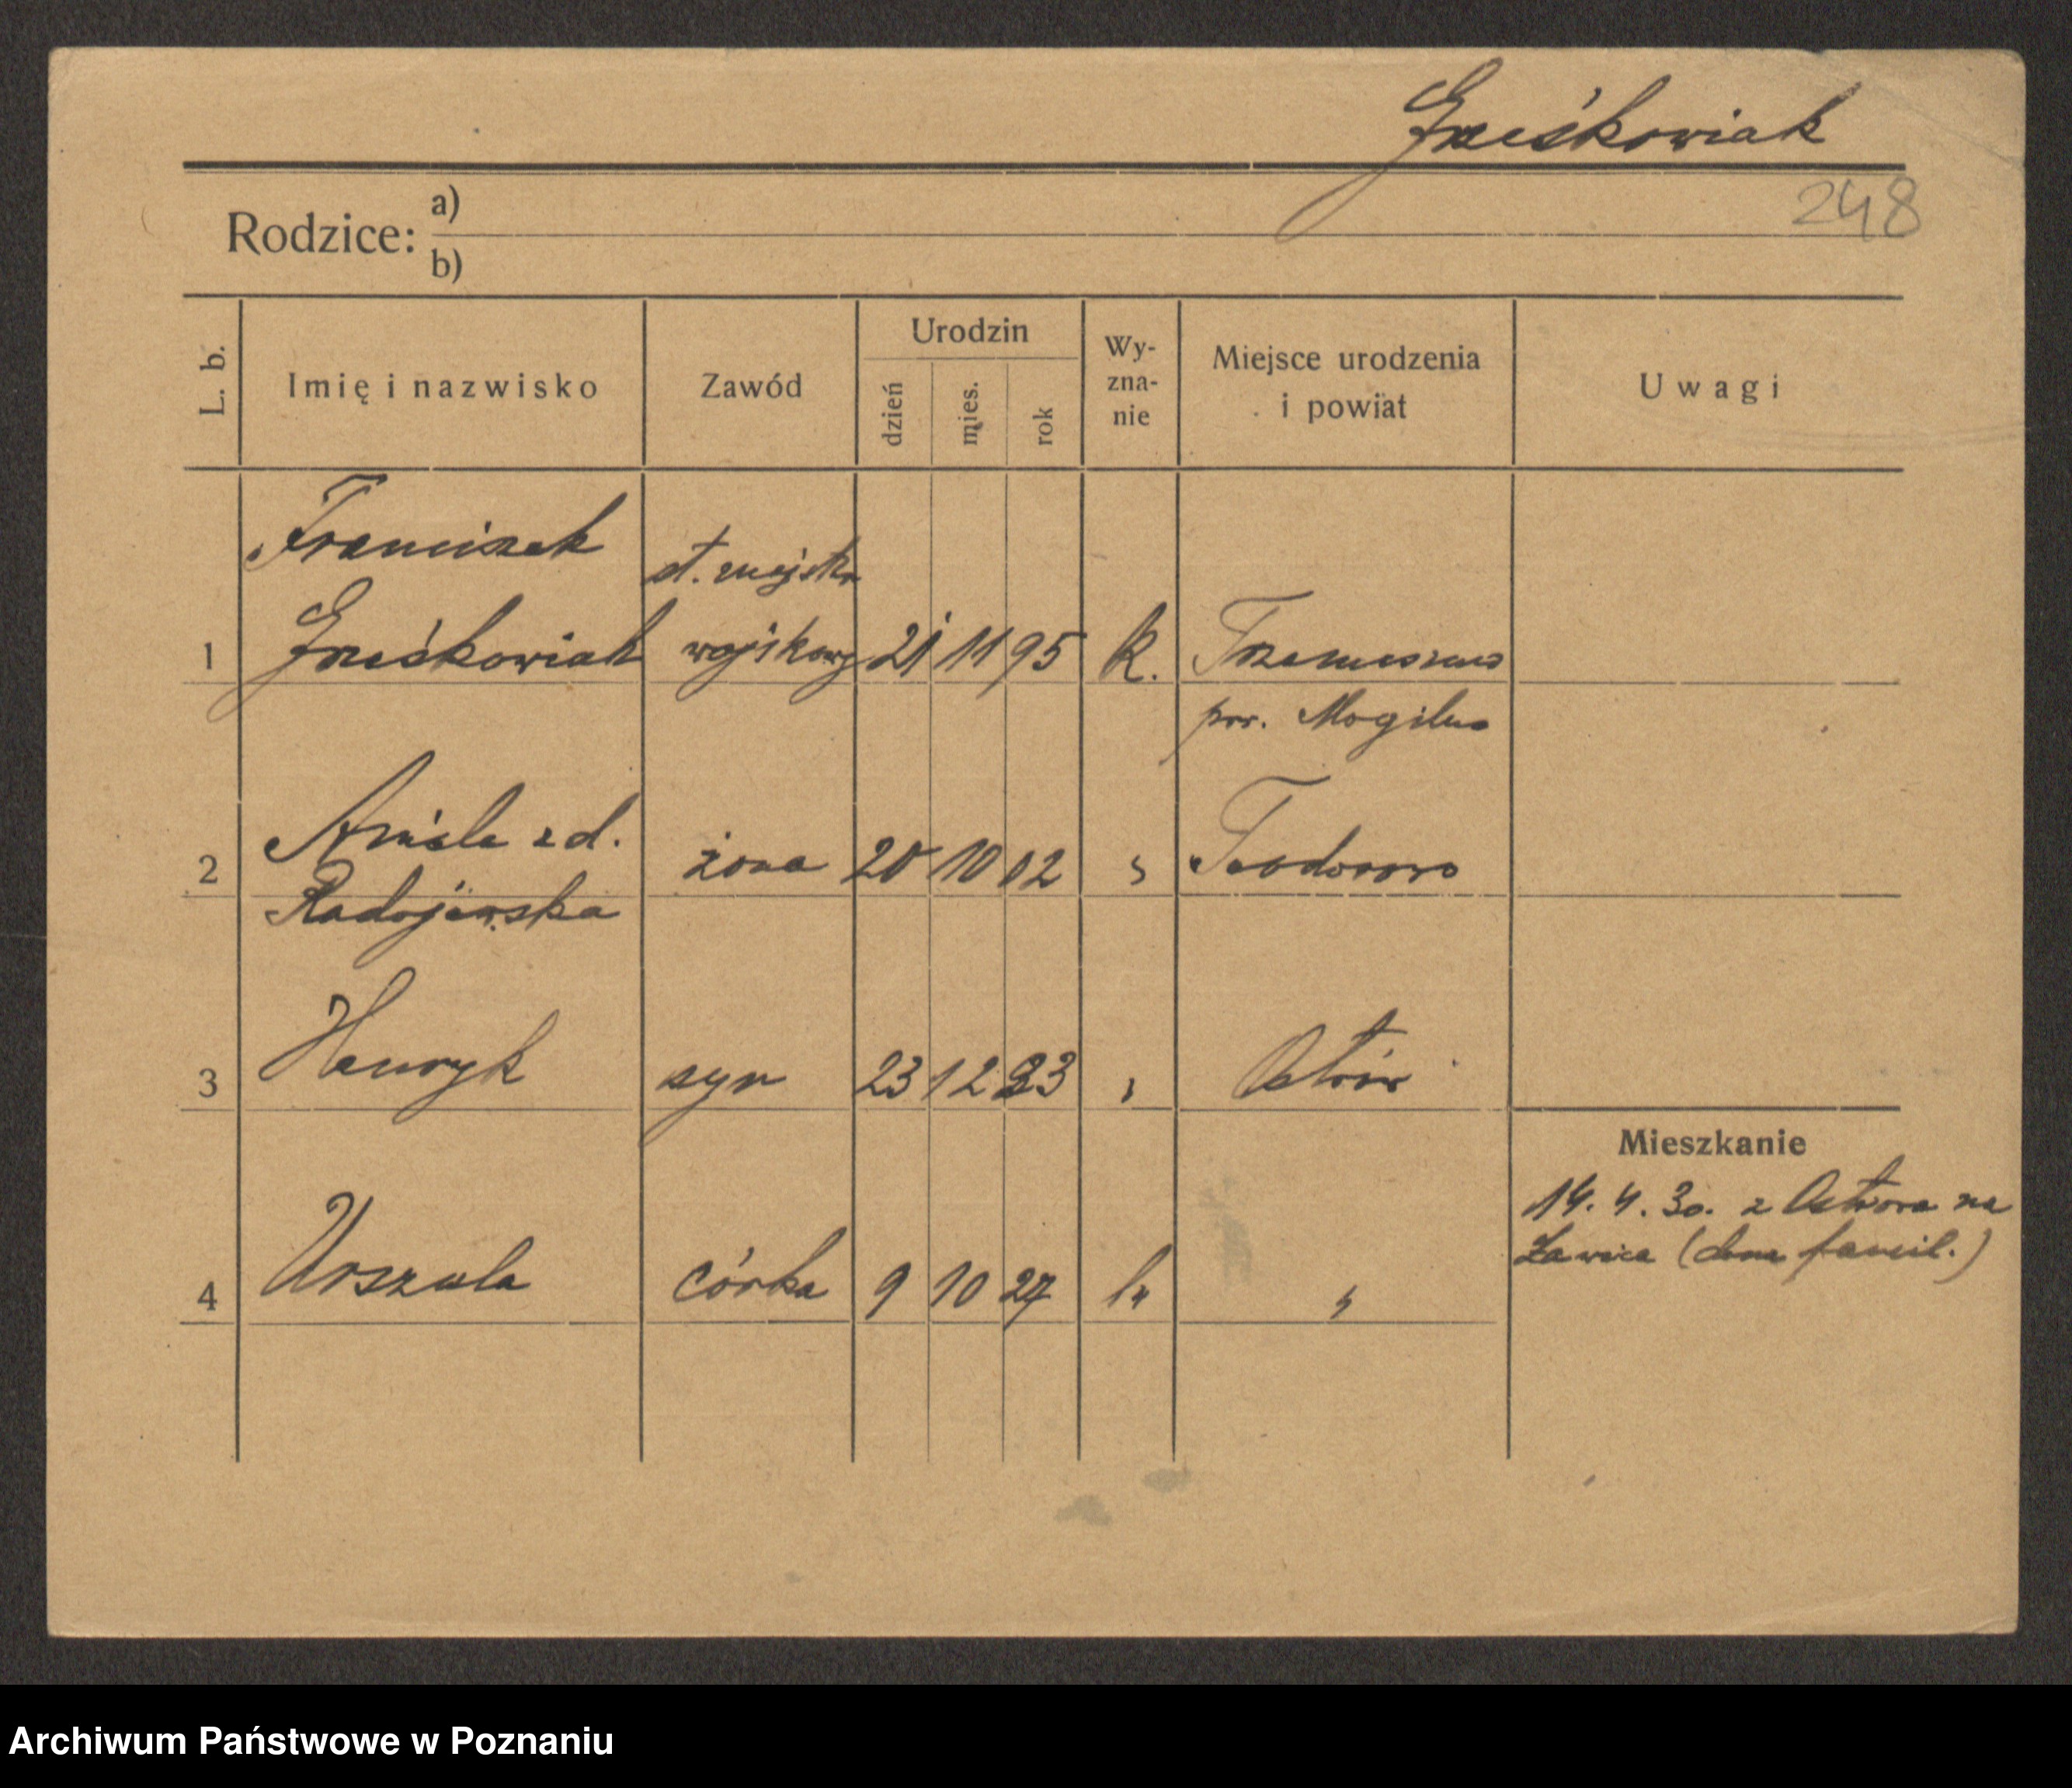 Grześkowiak
248
Rodzice: a)
b)
L. b. Imię i nazwisko Zawód Urodzin dzień mies. rok Wy-zna-nie Miejsce urodzenia i powiat Uwagi
Franciszek st. majster
1 Grześkowiak wojskowy 21 11 95 k. Trzemeszno
pow. Mogilno
z d.
2 Radojewska żona 20 10 02 " Teodorowo
3 Henryk syn 23 12 23 " Ostrów
Mieszkanie
14. 4. 30. z Ostrowa na
Ławica (dom famil.)
4 Urszula córka 9 10 27 "
Archiwum Państwowe w Poznaniu